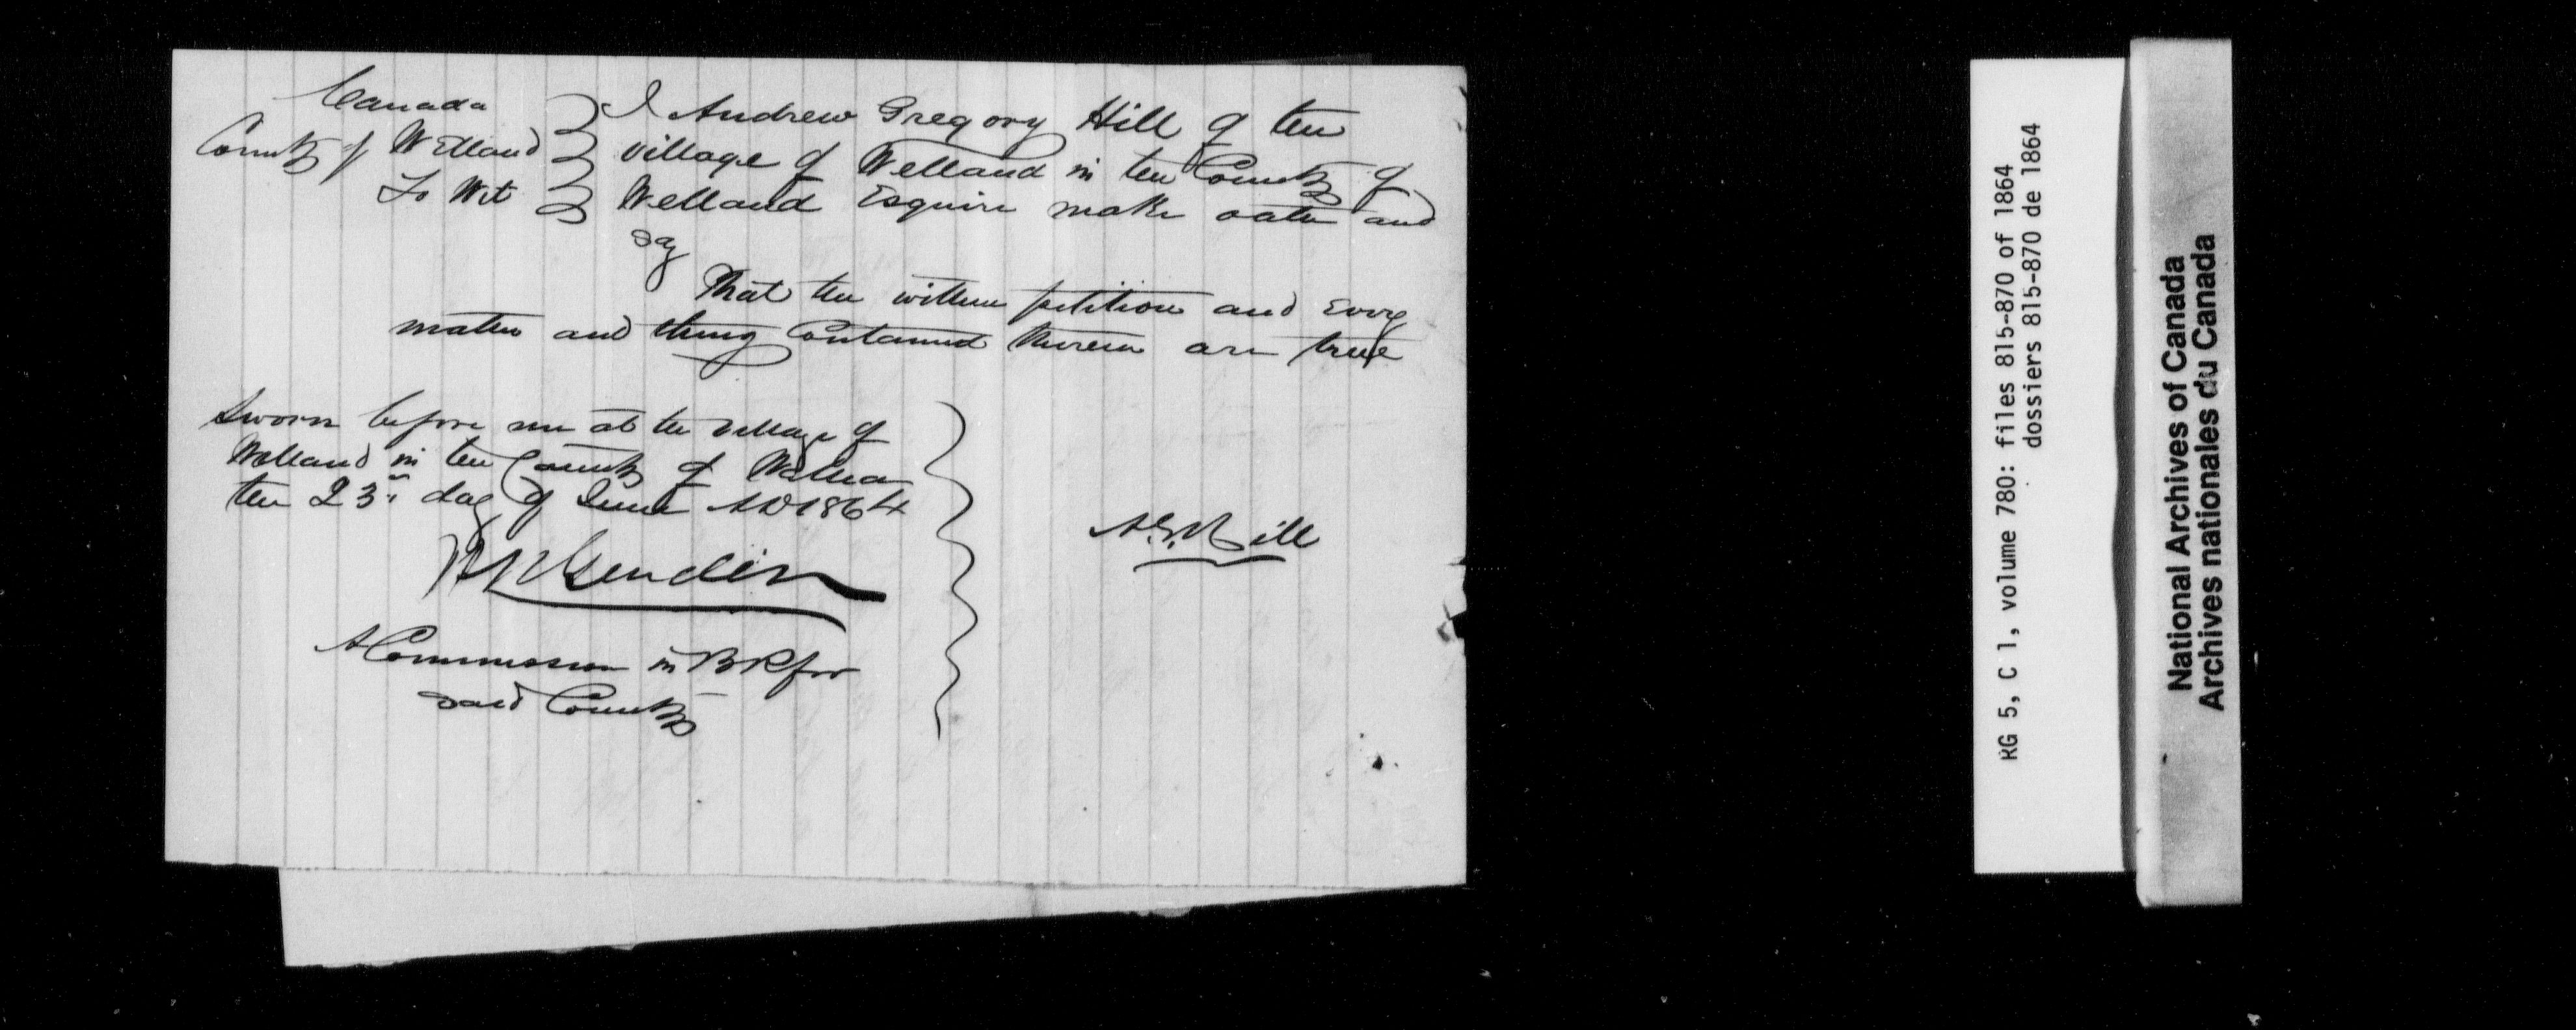 Canada
County of Welland
To Wit
I Andrew Gregory Hill of the
village of Welland in the County of
Welland Esquire make oath and
say
That the within petition and every
matter and thing contained therein are true
Sworn before me at the village of
Welland in the County of Welland
the 23rd day of June AD 1864
A Commissioner in BR for
said County
A.G. Hill
RG 5, C 1, volume 780: files 815-870 of 1864
dossiers 815-870 de 1864
National Archives of Canada
Archives nationales du Canada